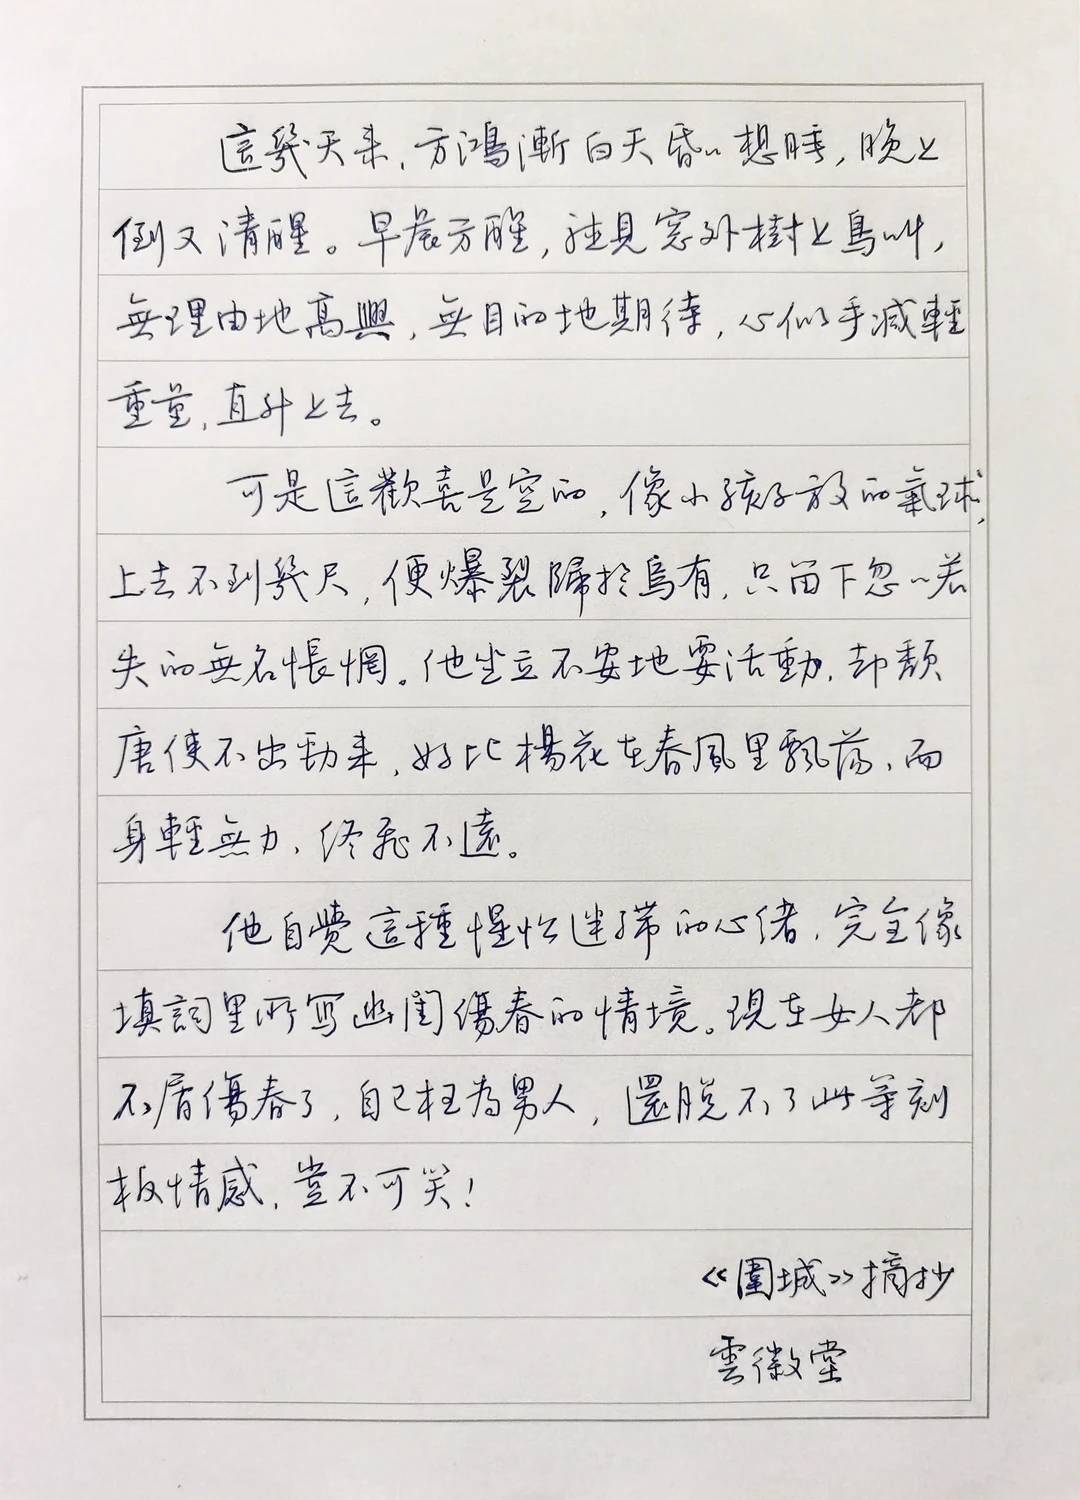 這幾天來，方鴻漸白天昏〃想睡，晚上
倒又清醒。早晨方醒，聽見窓外樹上鳥叫，
無理由地高興，無目的地期待，心似乎減輕
重量，直升上去。
可是這歡喜是空的，像小孩子放的氣球，
上去不到幾尺，便爆裂歸於烏有，只留下忽〃若
失的無名悵惘。他坐立不安地要活動，却頹
唐使不出勁來，好比楊花在春風里飄蕩，而
身輕無力，終飛不遠。
他自覺這種惺忪迷滯的心緒，完全像
填詞里所寫幽閨傷春的情境。現在女人都
不屑傷春了，自己枉為男人，還脫不了此等刻
板情感，豈不可笑！
《圍城》摘抄
雲徽堂